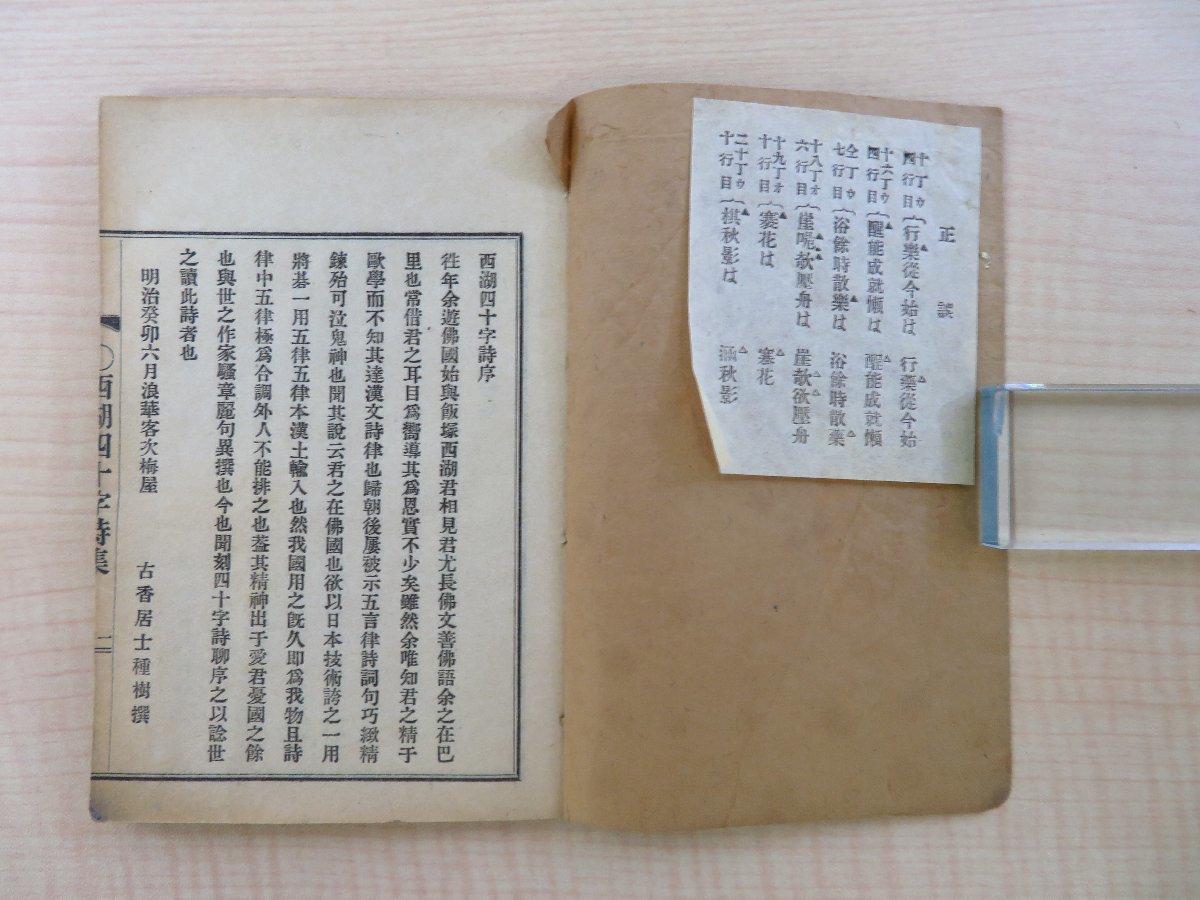 正誤
十丁ウ四行目｛行樂從今始は 行樂從今始
十六丁ウ四行目｛醒能成就懶は 醒能成就懶
仝丁ウ七行目｛浴餘時散樂は 浴餘時散藥
十八丁オ六行目｛崖呪欹壓舟は 崖欹欲壓舟
十九丁オ十行目｛寨花は 塞花
二十丁ウ十行目｛棋秋影は 涵秋影
西湖四十字詩序
徃年余遊佛國始與飯塚西湖君相見君尤長佛文善佛語余之在巴
里也常借君之耳目爲嚮導其爲恩實不少矣雖然余唯知君之精于
歐學而不知其達漢文詩律也歸朝後屢被示五言律詩詞句巧緻精
鍊殆可泣鬼神也聞其說云君之在佛國也欲以日本技術誇之一用
將碁一用五律五律本漢土輸入也然我國用之旣久即爲我物且詩
律中五律極爲合調外人不能排之也葢其精神出于愛君憂國之餘
也與世之作家騷章麗句異撰也今也聞刻四十字詩聊序之以諗世
之讀此詩者也
明治癸卯六月浪華客次梅屋 古香居士種樹撰
〇西湖四十字詩集 一